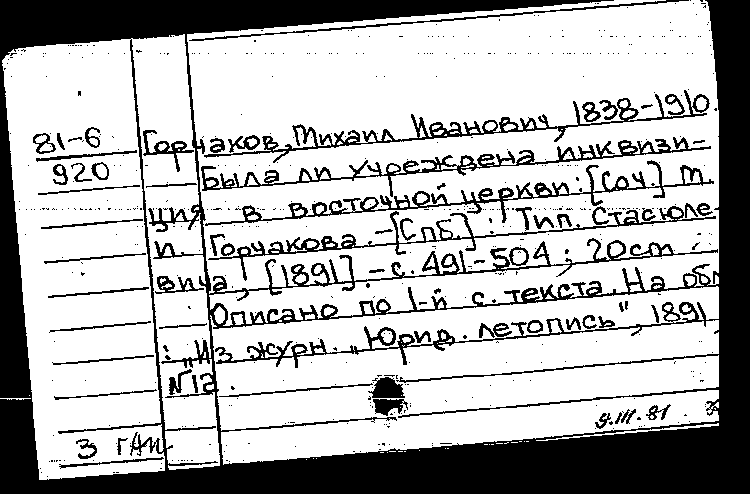 81-6
920
Горчаков, Михаил Иванович, 1838-1910.
Была ли учреждена инквизи-
ция в восточной церкви: [Соч.] М.
И. Горчакова. - [Спб.] : Тип. Стасюле-
вича, [1891]. - с. 491-504; 20 см :
Описано по 1-й с. текста. На обл
: „Из журн. „Юрид. летопись", 1891,
№12.
9.III.81
3